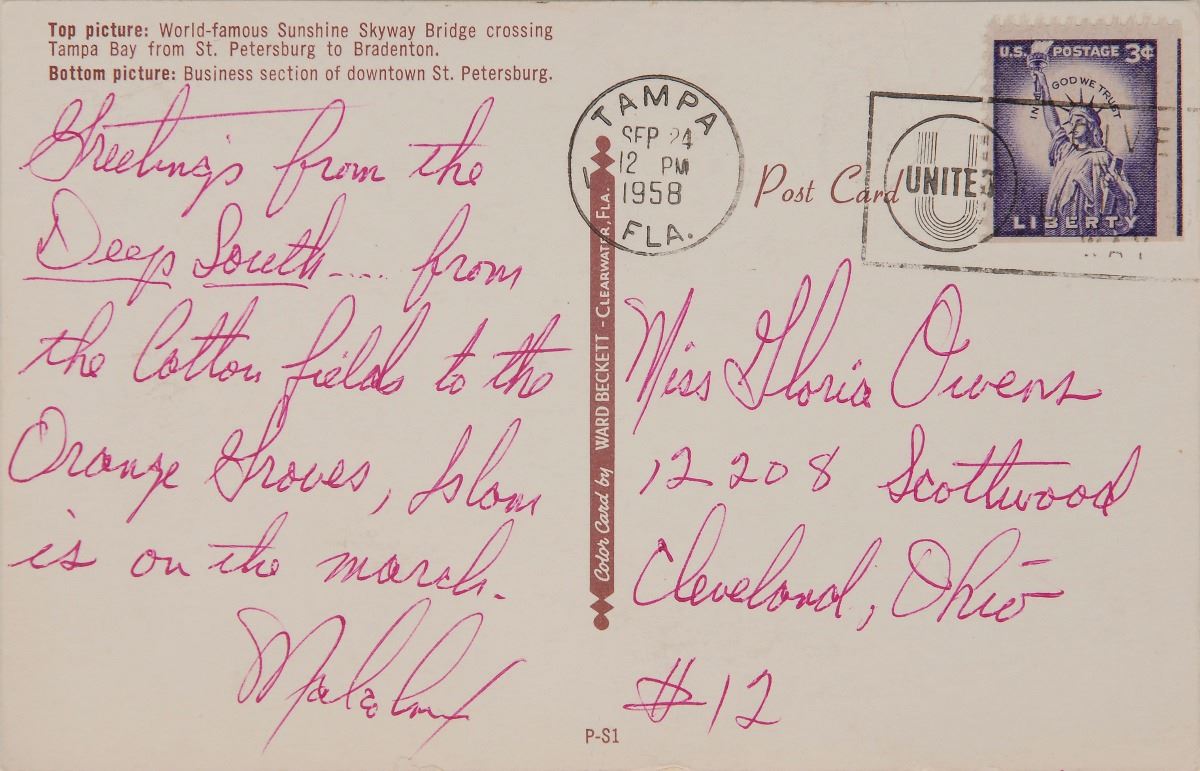 Top picture: World-famous Sunshine Skyway Bridge crossing
Tampa Bay from St. Petersburg to Bradenton.
Bottom picture: Business section of downtown St. Petersburg.
Greetings from the
Deep South.... from
the Cotton fields to the
Orange Groves, Islam
is on the march.
Malcolm X
P-S1
Color Card by WARD BECKETT - CLEARWATER, FLA.
TAMPA
SEP 24
12 PM
1958
FLA.
Post Card
UNITED
U.S. POSTAGE 3¢
IN GOD WE TRUST
LIBERTY
Miss Gloria Owens
12208 Scottwood
Cleveland, Ohio
#12